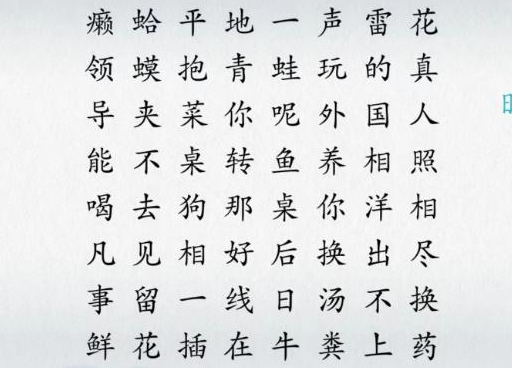 癞蛤平地一声雷花
领蟆抱青蛙玩的真
导夹菜你呢外国人
能不桌转鱼养相照
喝去狗那桌你洋相
凡见相好后换出尽
事留一线日汤不换
鲜花插在牛粪上药